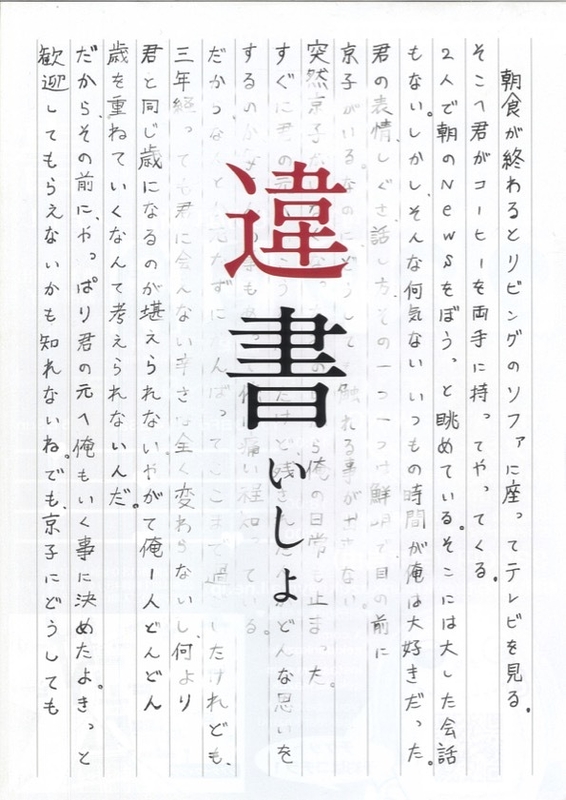 違書
いしょ
朝食が終わるとリビングのソファに座ってテレビを見る。
そこへ君がコーヒーを両手に持ってやってくる。
2人で朝のNewsをぼうっと眺めている。そこには大した会話
もない。しかし、そんな何気ないいつもの時間が俺は大好きだった。
君の表情、しぐさ、話し方、その一つ一つは鮮明で目の前に
京子がいるなのにどうしても触れる事が出来ない。
突然京子が 俺の日常も止まった。
すぐに君の元へ けど、残された どんな思いを
するのか 俺は痛い程知っている。
だからなんとか ずにがんばってここまで過ごしたけれども、
三年経っても君に会えない辛さは全く変わらないし、何より
君と同じ歳になるのが堪えられないやがて俺1人どんどん
歳を重ねていくなんて考えられないんだ。
だから、その前に、やっぱり君の元へ俺もいく事に決めたよ。きっと
歓迎してもらえないかも知れないね。でも、京子にどうしても